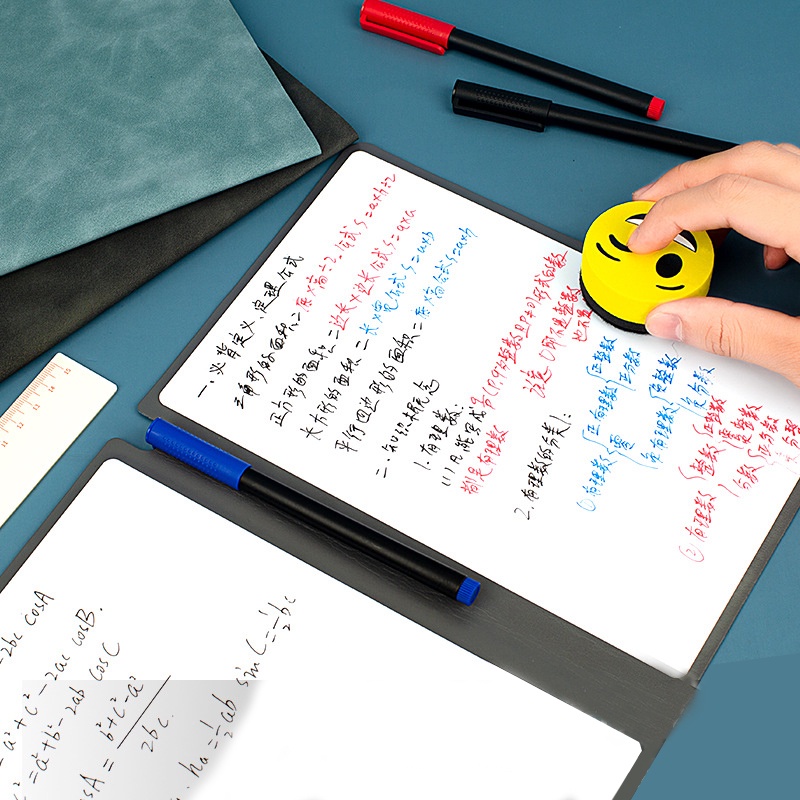 一、必背定义、定理公式
三角形的面积=底×高÷2 公式 S=a×h÷2
正方形的面积=边长×边长 公式 S=a×a
长方形的面积=长×宽 公式 S=a×b
平行四边形的面积=底×高 公式 S=a×h
二、知识术概念
1.有理数:
(1)凡能写成 (P,q为整数且P≠0)形式的数
都是有理数 注意:0即不是整数
也不是
2.有理数的分类:
①有理数 正有理数 正整数
正分数
零
负有理数 负整数
负分数
②有理数 整数 正整数
零
负整数
分数 正分数
负分数
-2bc cosA
a²+c²-2ac cosB.
=a²+b²-2ab cosC
sA = b²+c²-a² / 2bc.
ha = 1/2 ab sin C = 1/2 bc
11 12 13 14 15